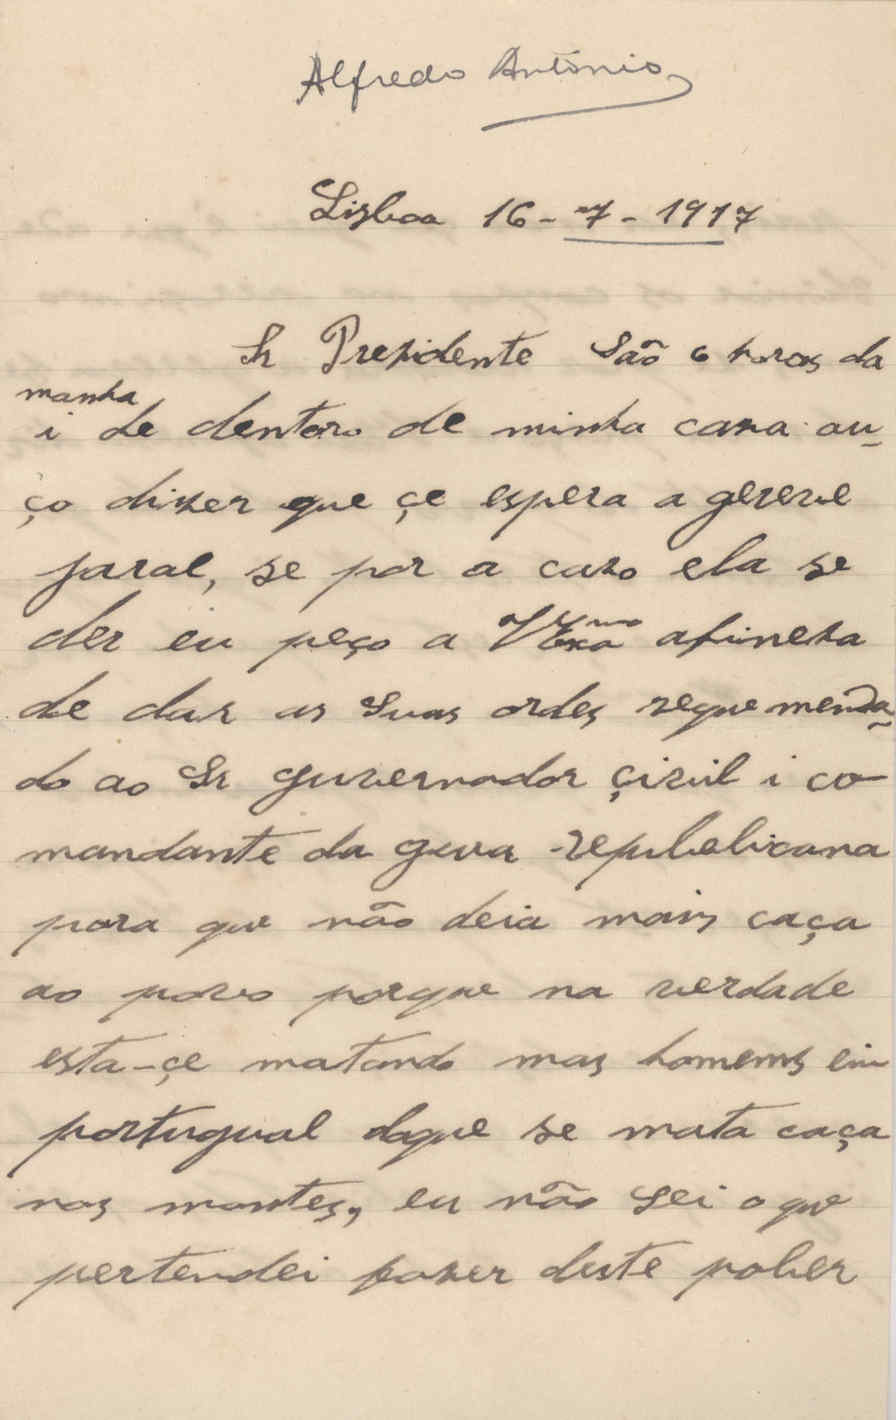 Alfredo António
Lisboa 16-7-1917
Sr Prezidente São 6 horas da
manha
i de dentoro de minha caza au-
ço dizer que çe espera a greve
jaral, se por a cazo ela se
der eu peço a VExa afineza
de dar as Suas ordes requemenda-
do ao Sr guvernador çivil i co-
mandante da guar republicana
para que não deia mais caça
ao povo porque na verdade
esta-çe matando mas homems em
portugual doque se mata caça
nos montes, eu não sei o que
pertendei fazer deste pober